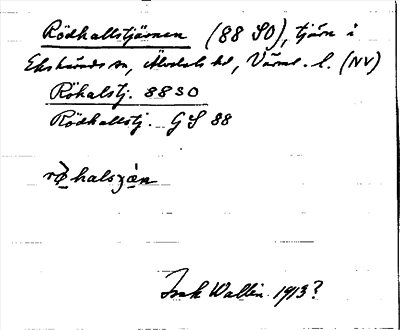 Rödkallstjärnen (88 SO), tjärn i
Ekshärads sn, Älvdals hd, Värml. l. (NV)
Rökalstj. 88 SO
Rödkallstj. GS 88
Isak Wallin 1913?